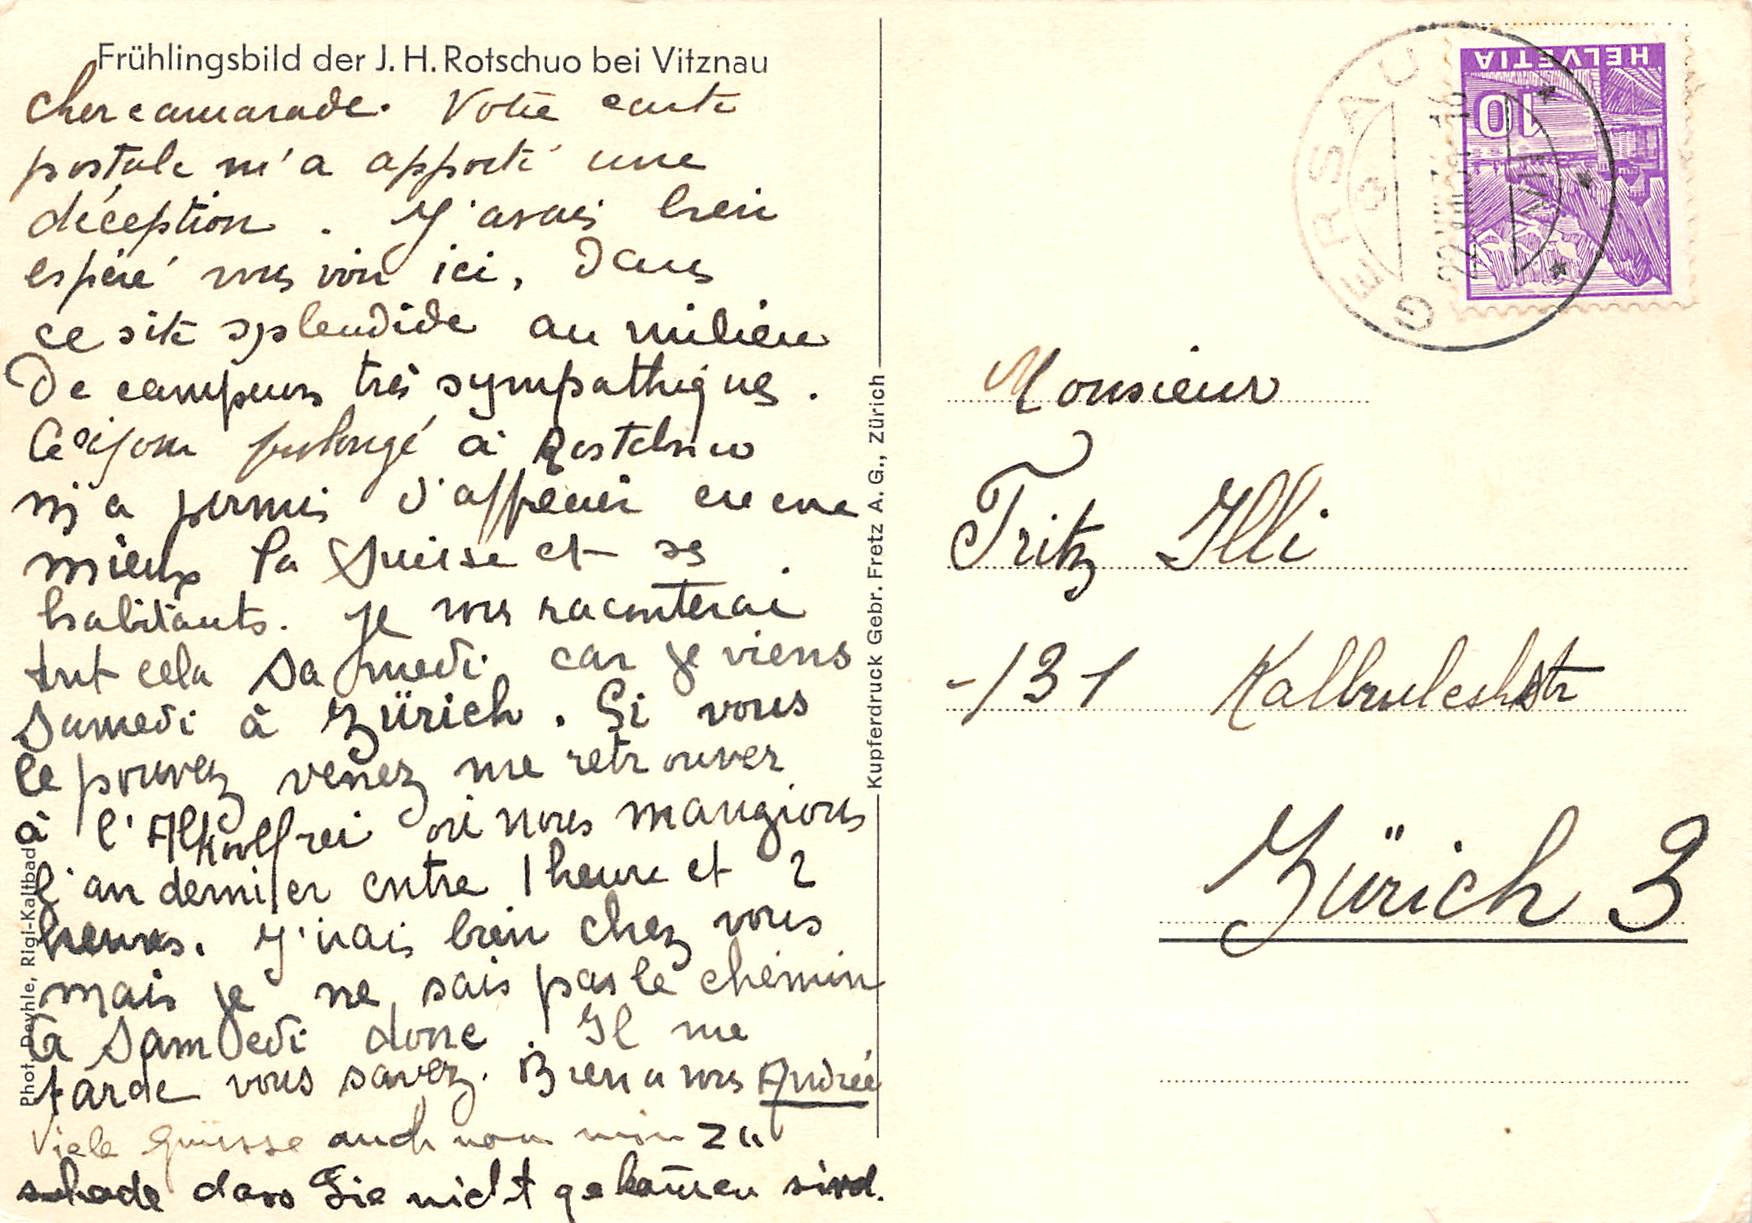 Frühlingsbild der J. H. Rotschuo bei Vitznau
Cher camarade. Votre carte
postale m'a apporté une
déception. J'avais bien
espéré vous voir ici, dans
ce site splendide au milieu
de campeurs très sympathiques.
Ce séjour prolongé à Rotschuo
m'a permis d'apprécier encore
mieux la Suisse et ses
habitants. Je vous raconterai
tout cela samedi car je viens
samedi à Zürich. Si vous
le pouvez venez me retrouver
à l'Alkoolfrei où nous mangions
l'an dernier entre 1 heure et 2
heures. J'irais bien chez vous
mais je ne sais pas le chemin
à samedi donc. Il me
tarde vous savez. Bien à vous Andrée
Viele Grüsse auch von
schade dass Sie nicht gekommen sind.
Phot. Deyhle, Rigi-Kaltbad
Kupferdruck Gebr. Fretz A. G., Zürich
HELVETIA
10
GERSAU
Monsieur
Fritz Illi
131
Zürich 3